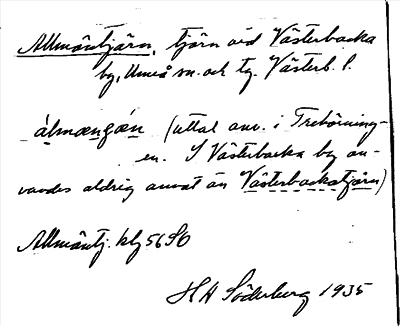 Allmäntjärn, tjärn vid Västerbacka
by, Umeå sn. och tg. Västerb. l.
álmæŋǥǽn (uttal anv. i Trehörning-
en. I Västerbacka by an-
vändes aldrig annat än Västerbackatjärn)
Allmäntj. klg 56 SO
H A Söderberg 1935